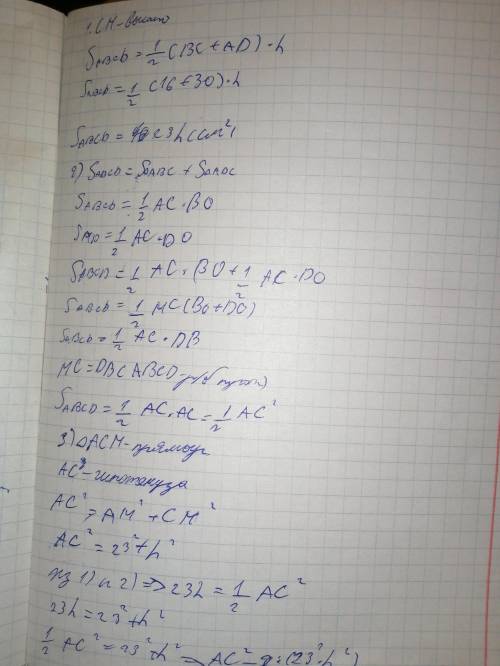 1. CM-высота
S ABCD = 1/2 (BC + AD) · h
S ABCD = 1/2 (16 + 30) · h
S ABCD = 23h (см²)
2) S ABCD = S△ABC + S△ADC
S ABCD = 1/2 AC · BO
S AD = 1/2 AC · DO
S ABCD = 1/2 AC · BO + 1/2 AC · DO
S ABCD = 1/2 AC (BO + DO)
S ABCD = 1/2 AC · DB
AC = DB ABCD-
S ABCD = 1/2 AC · AC = 1/2 AC²
3) △ACM-прямоуг
AC - гипотенуза
AC² = AM² + CM²
AC² = 23² + h²
из 1) и 2) => 23h = 1/2 AC²
23h = 23² + h²
1/2 AC² = 23² + h² => AC² = 2 · (23² + h²)